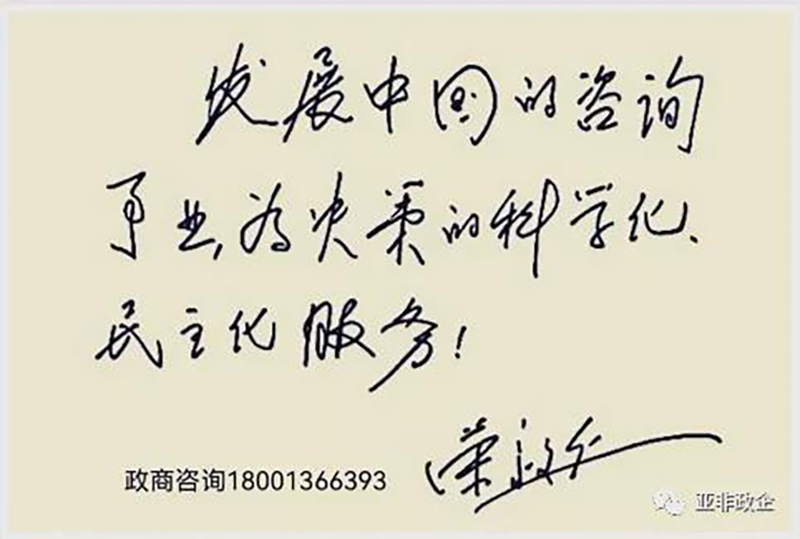 发展中国的咨询
事业,为决策的科学化、
民主化服务!
政商咨询18001366393
亚非政企